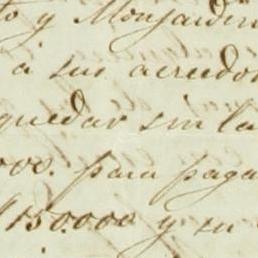 to y Monjardin
a sus acreedor
quedar sin la
000. para paga
150.000 y su